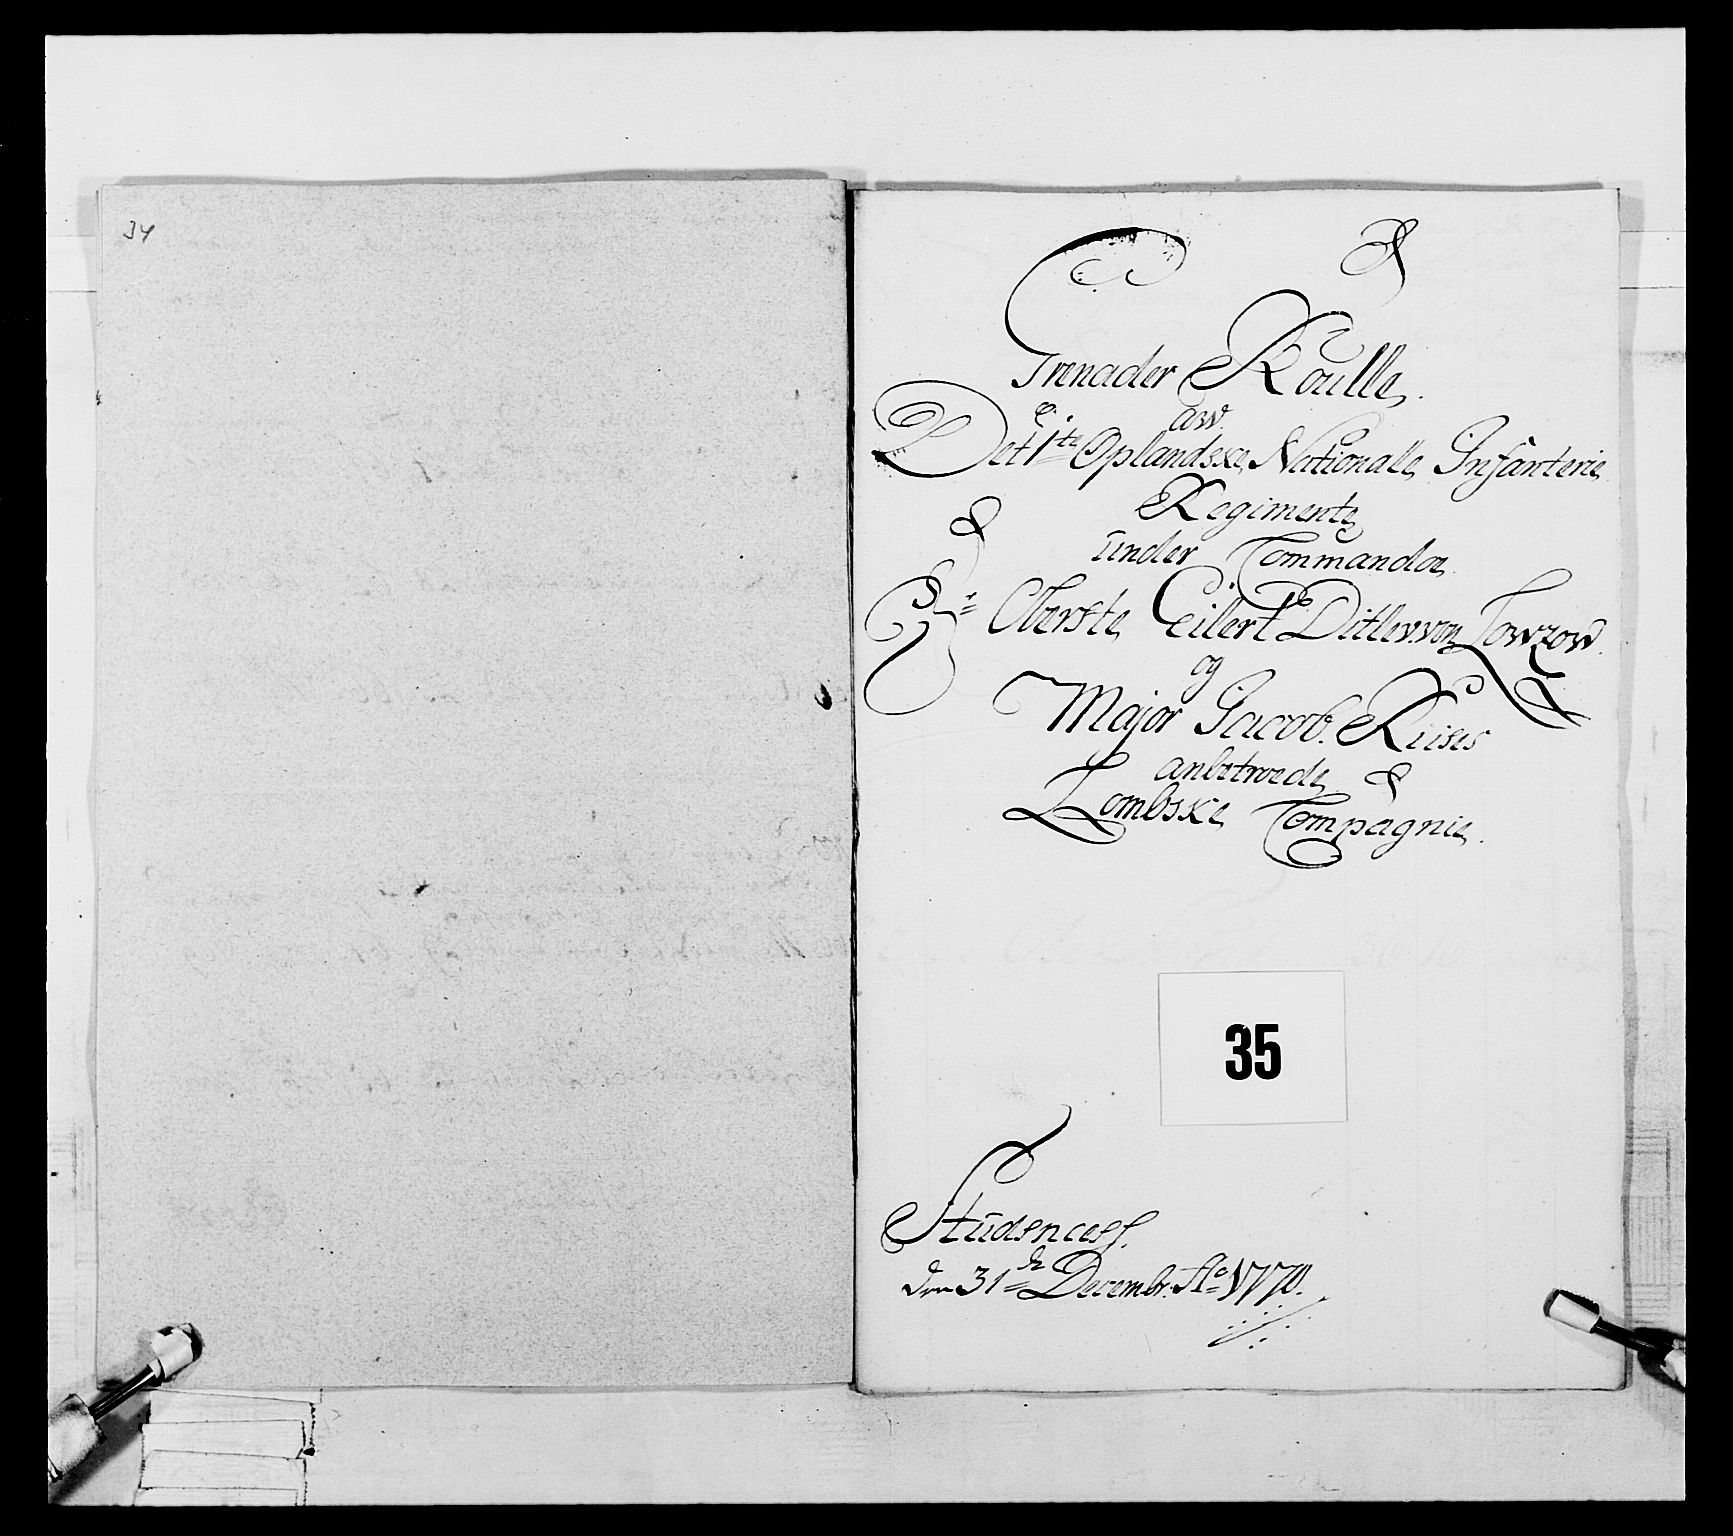 34
Grenader Roulle.
aw.
Det 1te Oplandske Nationale Infanterie
Regimente
under Commando
Hr: Oberste Eilert Ditlev von Lowzow.
og
Major Jacob. Riises
anbetroede
Lombske Compagnie.
35
den 31de Decembr. Ao 1770.